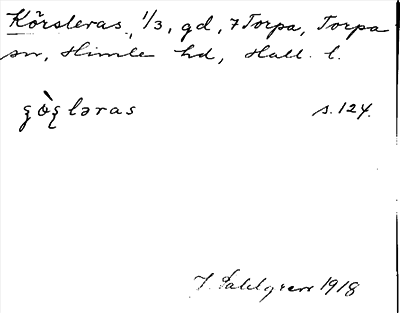 Körsleras, 1/3, gd, 7 Torpa, Torpa
sn, Himle hd, Hall. l.
s. 124.
J. Sahlgren 1918